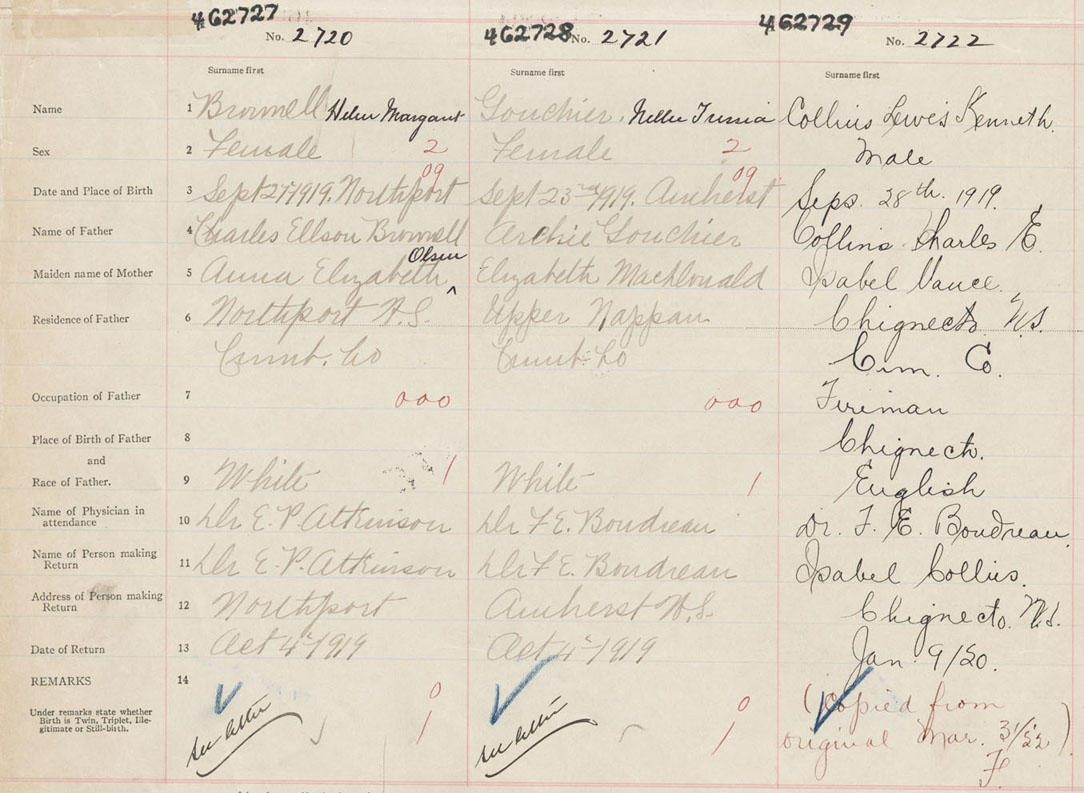 462727 462728 462729
No. 2720 No. 2721 No. 2722
Surname first Surname first Surname first
Name 1 Brownell Helen Margaret Gouchier, Nellie Collins Lewis Kenneth.
Sex 2 Female 2 Female 2 Male
09 09
Date and Place of Birth 3 Sept 27 1919. Northport Sept 23rd 1919. Amherst Seps. 28th. 1919.
Name of Father 4 Charles Ellson Brownell Archie Gouchier Collins. Charles E.
Olsen
Maiden name of Mother 5 Anna Elizabeth ^ Elizabeth MacDonald Isabel Vance.
Residence of Father 6 Northport N.S. Upper Nappan Chignecto. N.S.
Cumb. Co Cumb. Co Cum. Co.
Occupation of Father 7 000 000 Fireman
Place of Birth of Father 8 Chignect.
and
Race of Father. 9 White 1 White 1 English
Name of Physician in
attendance 10 Dr E. P. Atkinson Dr F E. Boudreau Dr. F. E. Boudreau.
Name of Person making
Return 11 Dr E. P. Atkinson Dr F E. Boudreau Isabel Collins.
Address of Person making
Return 12 Northport Amherst N.S. Chignecto. N.S.
Date of Return 13 Oct 4th 1919 Oct 4th 1919 Jan. 9/20.
REMARKS 14
Under remarks state whether
Birth is Twin, Triplet, Ille-
gitimate or Still-birth.
see letter 0 1 see letter 0 1 (Copied from
original Mar. 31/22)
F.